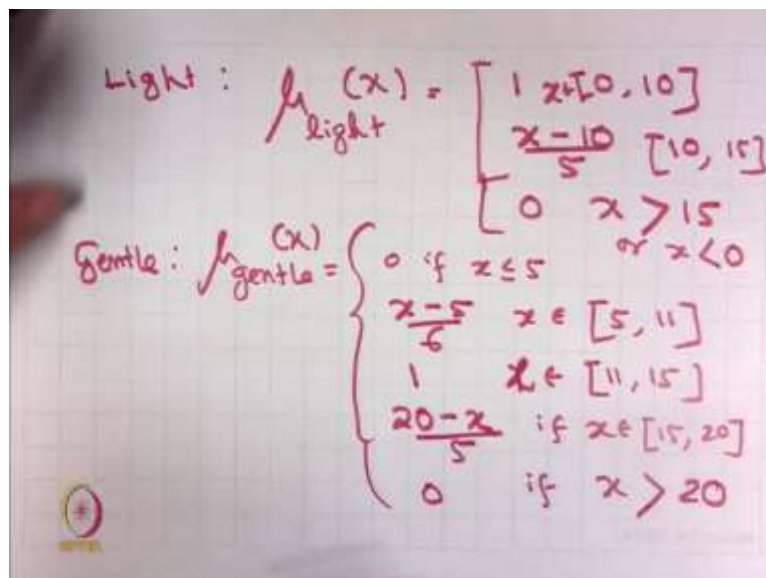 Light : μ light (x) = [ 1 x∈[0, 10]
x - 10 / 5 [10, 15]
0 x > 15
or x < 0
Gentle : μ gentle (x) = { 0 if x ≤ 5
x - 5 / 6 x ∈ [5, 11]
1 x ∈ [11, 15]
20 - x / 5 if x ∈ [15, 20]
0 if x > 20